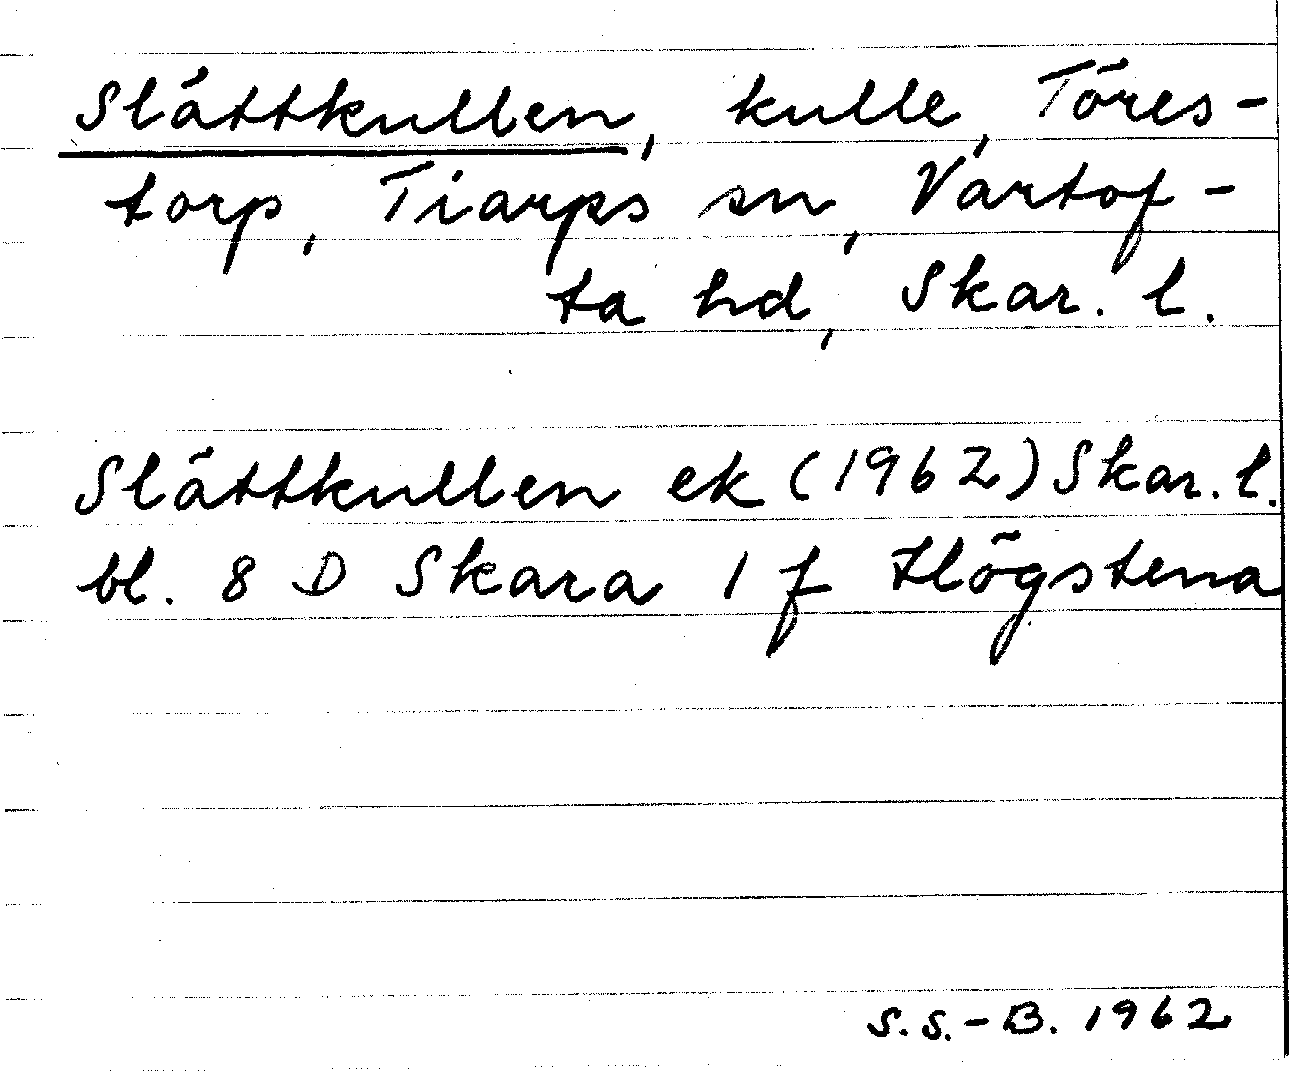 Slättkullen, kulle, Töres-
torp, Tiarps sn, Vartof-
ta hd, Skar. l.
Slättkullen ek (1962) Skar. l.
bl. 8 D Skara 1 f Högstena
S.S.-B. 1962